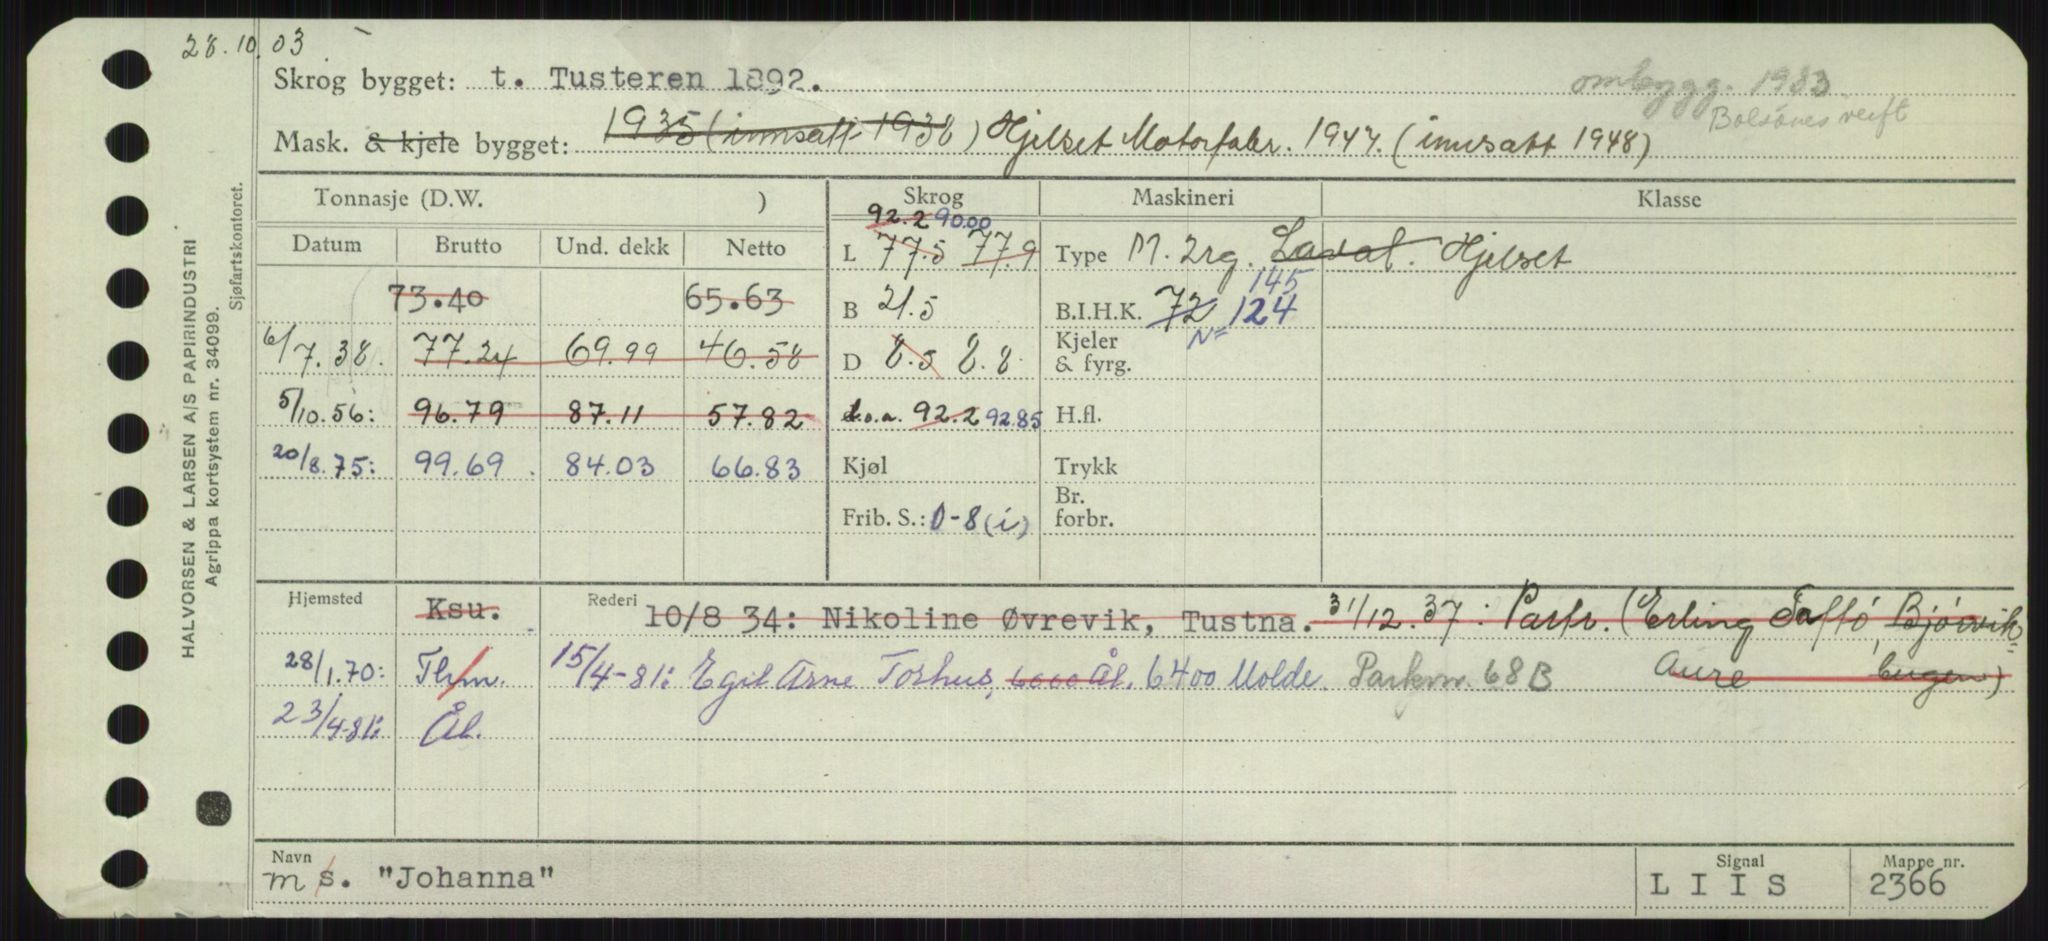 28.10.03
Skrog bygget: t. Tusteren 1892. ombygg. 1983
Bolsönes verft
Mask. & kjele bygget: 1935 (innsatt 1938) Hjelset Motorfabr. 1947. (innsatt 1948)
Tonnasje (D.W. ) Skrog Maskineri Klasse
92.2 90.00
Datum Brutto Und. dekk Netto L 77.5 77.9 Type M. 2rg. Laval. Hjelset
145
73.40 65.63 B 21.5 B.I.H.K. 72 124
N=
6/7.38. 77.24 69.99 46.58 D 8.5 8.8 Kjeler & fyrg.
5/10.56: 96.79 87.11 57.82 L.o.a. 92.2 92.85 H.fl.
20/8.75: 99.69 84.03 66.83 Kjøl Trykk
Frib. S.: 0-8 (i) Br. forbr.
Hjemsted Ksu. Rederi 10/8 34: Nikoline Øvrevik, Tustna. 31/12.37: Partr. (Erling Saltö, Bjørvik-
28/1.70: Thm. 15/4-81: Egil Arne Torhus, 6000 Ål. 6400 Molde. Parkvn. 68B Aure bugen)
23/4-81: Ål.
Navn Signal Mappe nr.
m/s. "Johanna" LIIS 2366
HALVORSEN & LARSEN A/S PAPIRINDUSTRI
Agrippa kortsystem nr. 34099.
Sjøfartskontoret.